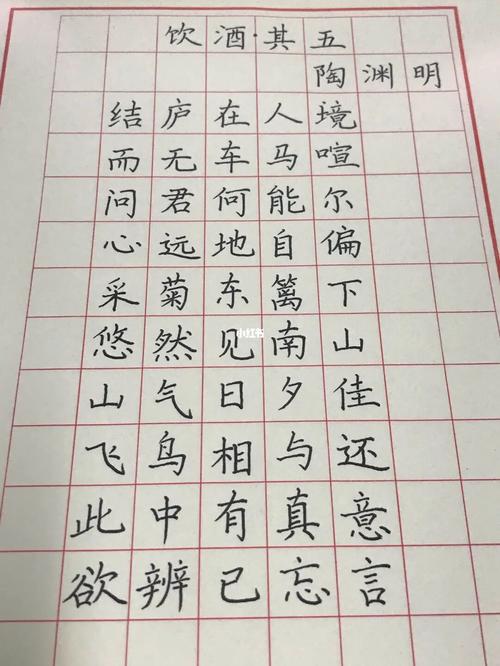 饮酒·其五
陶渊明
结庐在人境
而无车马喧
问君何能尔
心远地自偏
采菊东篱下
悠然见南山
小红书
山气日夕佳
飞鸟相与还
此中有真意
欲辨已忘言